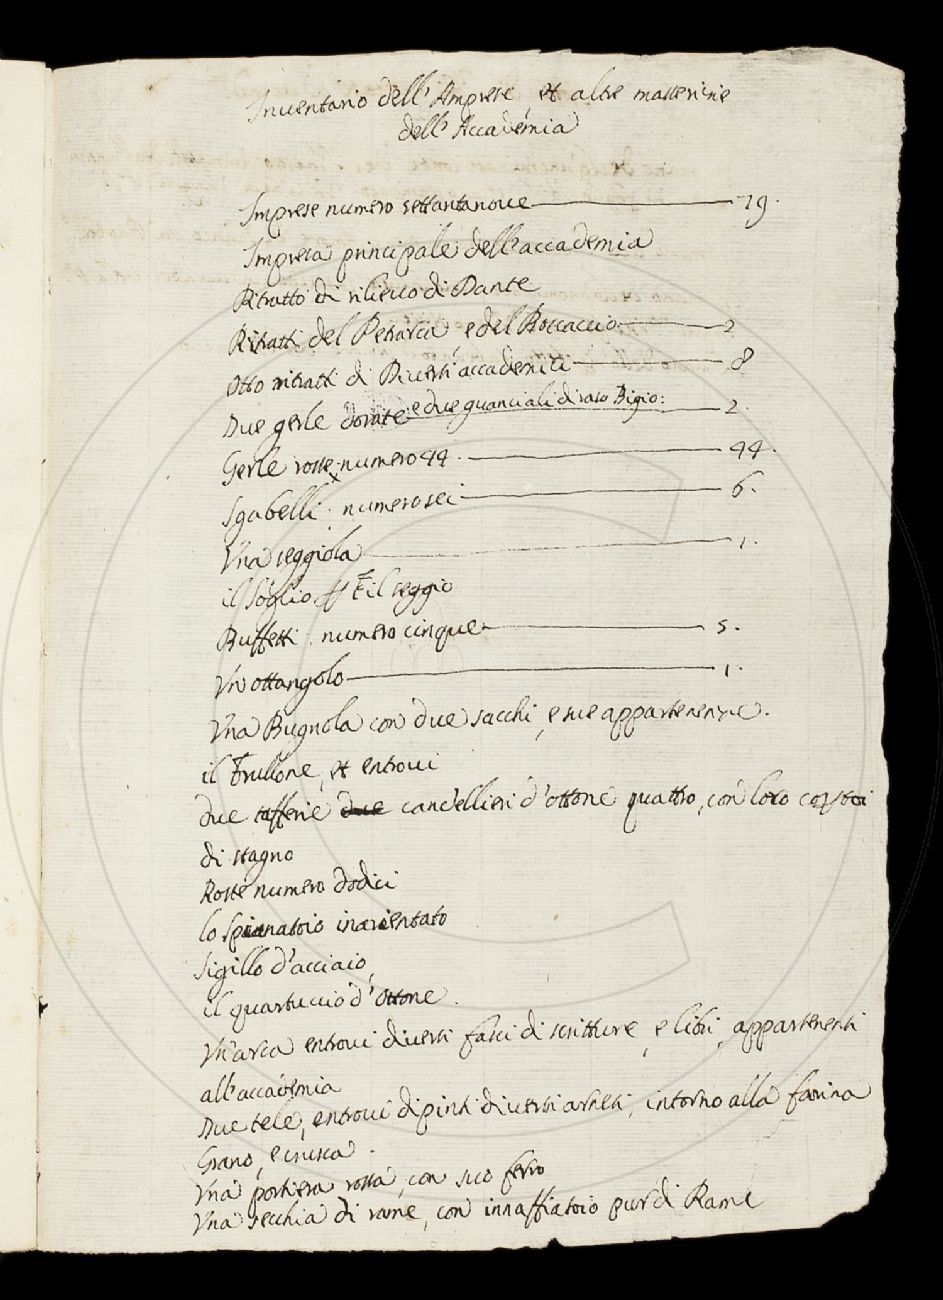 Inventario dell'Imprese, et altre masserizie
dell'Accademia
Imprese numero settantanoue 79.
Impresa principale dell'accademia
Ritratto di rilieuo di Dante
Ritratti del Petrarca, e del Boccaccio 2
Otto ritratti di Diuersi accademici 8
Due gerle dorate e due guanciali di raso Bigio: 2.
Gerle rosse numero 44. 44.
Sgabelli numero sei 6.
Vna seggiola 1.
il soglio il seggio
Buffetti numero cinque 5.
Vn ottangolo 1.
Vna Bugnola con due sacchi, e sue appartenenzie.
il Frullone, et entroui
due tafferie due candellieri d'ottone quattro, con loro
di stagno
Roste numero dodici
lo Spianatoio inarientato
Sigillo d'acciaio,
il quartuccio d'Ottone.
Vn'arca entroui diuersi fasci di scritture, e libri, appartenenti
all'accademia
Due tele, entroui dipinti diuersi arnesi, intorno alla farina
Grano, e crusca.
Vna portiera rossa, con suo ferro
Vna secchia di rame, con innaffiatoio pur di Rame